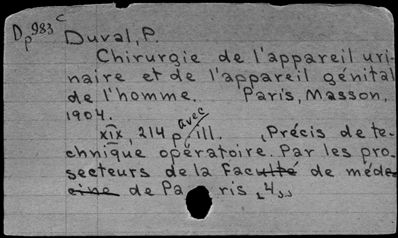 Dp983c
Duval, P.
Chirurgie de l'appareil uri-
naire et de l'appareil génital
de l'homme. Paris, Masson,
1904.
xix, 214 p avec ill. (Précis de te-
chnique opératoire. Par les pro-
secteurs de la Faculté de méde
cine de Paris [4])